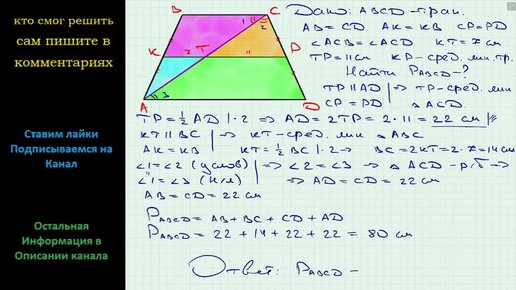 кто смог решить
сам пишите в
комментариях
Ставим лайки
Подписываемся на
Канал
Остальная
Информация в
Описании канала
B C
1 2
K 7 T 11 P
A 3 D
Дано: ABCD - трап.
AB = CD AK = KB CP = PD
∠ACB = ∠ACD KT = 7 см
TP = 11 см KP - сред. лин. тр.
Найти PABCD - ?
TP ∥ AD | ⇒ TP - сред. лин
CP = PD | △ACD
TP = ½ AD | · 2 ⇒ AD = 2TP = 2 · 11 = 22 см
KT ∥ BC | ⇒ KT - сред. лин △ABC
AK = KB | KT = ½ BC | · 2 ⇒ BC = 2KT = 2 · 7 = 14 см
∠1 = ∠2 (услов) | ⇒ ∠2 = ∠3 ⇒ △ACD - р/б ⇒
∠1 = ∠3 (н/л) | ⇒ AD = CD = 22 см
AB = CD = 22 см
PABCD = AB + BC + CD + AD
PABCD = 22 + 14 + 22 + 22 = 80 см
Ответ: PABCD -